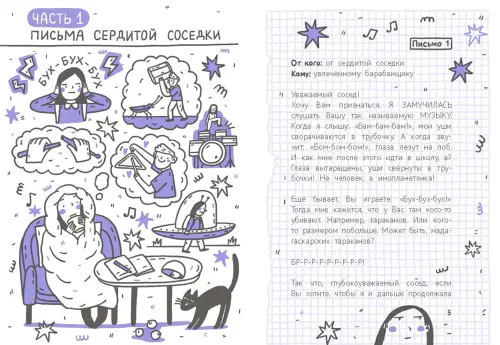 ЧАСТЬ 1
ПИСЬМА СЕРДИТОЙ СОСЕДКИ
БУХ-БУХ-БУХ
Письмо 1
От кого: от сердитой соседки
Кому: увлечённому барабанщику
Уважаемый сосед!
Хочу Вам признаться. Я ЗАМУЧИЛАСЬ
слушать Вашу так называемую МУЗЫКУ.
Когда я слышу: «Бам-бам-бам!», мои уши
сворачиваются в трубочку. А когда зву-
чит: «Бом-бом-бом!», глаза лезут на лоб.
И как мне после этого идти в школу, а?
Глаза вытаращены, уши свернуты в тру-
бочки! Не человек, а инопланетянка!
Ещё бывает, Вы играете: «Бух-бух-бух!»
Тогда мне кажется, что у Вас там кого-то
убивают. Например, тараканов. Или кого-
то размером побольше. Может быть, мада-
гаскарских тараканов?
БР-Р-Р-Р-Р-Р-Р-Р-Р!
Так что, глубокоуважаемый сосед, если
Вы хотите, чтобы я и дальше продолжала